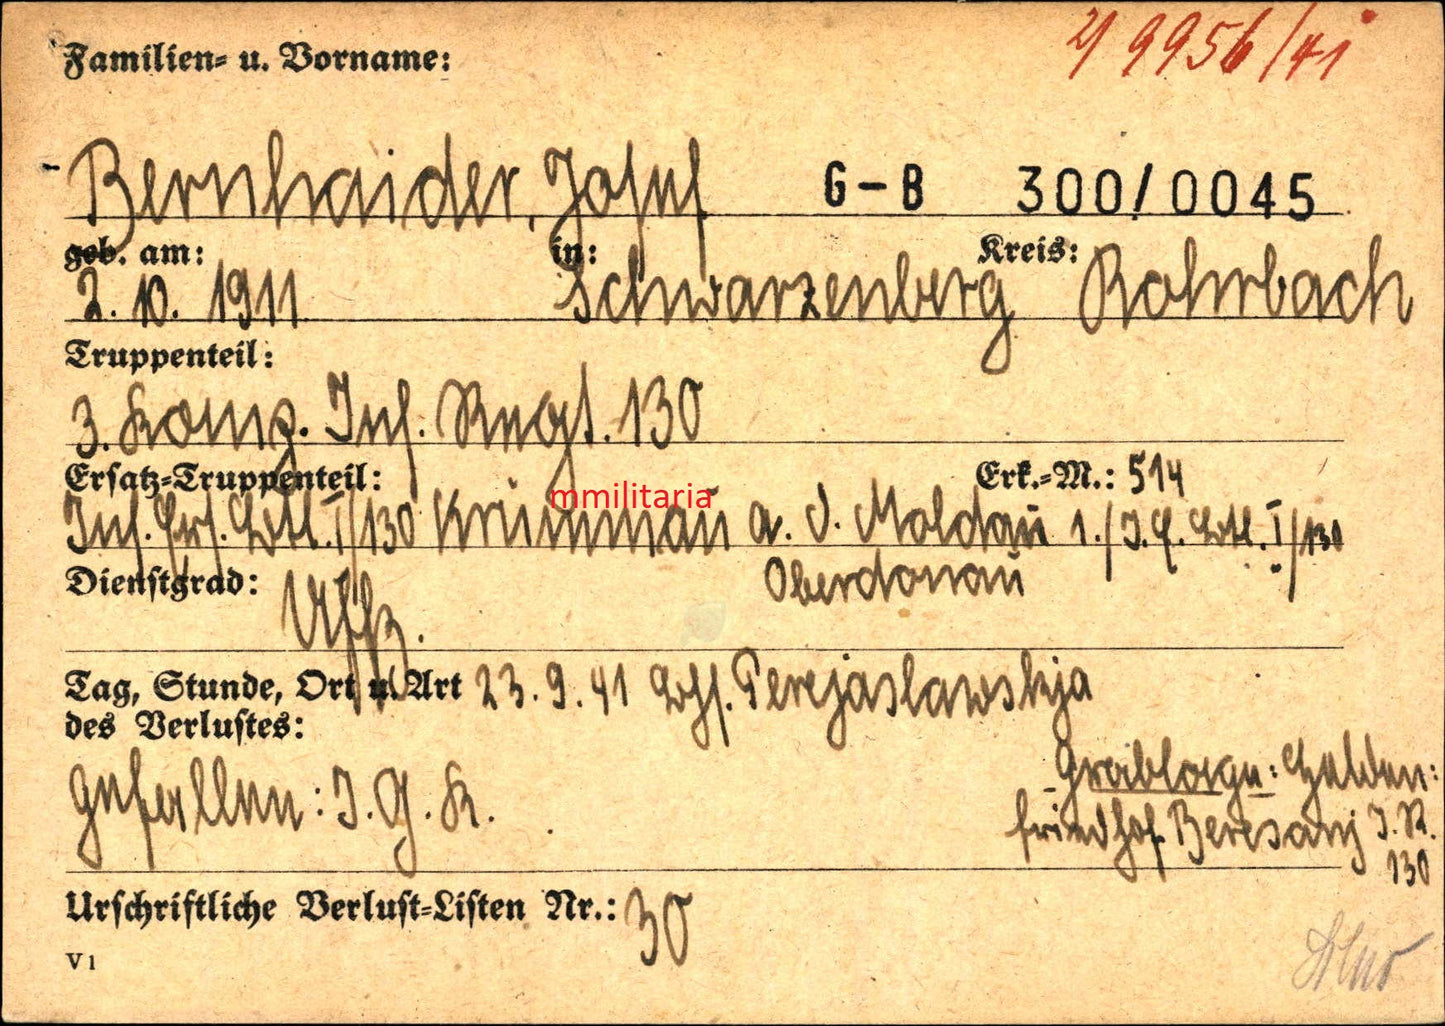 2/ 9956/41
Familien- u. Vorname:
Bernhaider, Josef G-B 300/0045
geb. am: in: Kreis:
2. 10. 1911 Schwarzenberg Rohrbach
Truppenteil:
3. Komp. Inf. Regt. 130
Ersatz-Truppenteil: Erk.-M.: 514
mmilitaria
Inf. Ers. Btl. I/130 Krummau a. d. Moldau 1./I.E. Btl. I/130
Oberdonau
Dienstgrad: Uffz.
Tag, Stunde, Ort u. Art 23.9.41 Perejaslawskja
des Verlustes:
gefallen: I. G. K.
Grablage: Helden-
friedhof Beresanj I.R.
130
Urschriftliche Verlust-Listen Nr.: 30
V 1